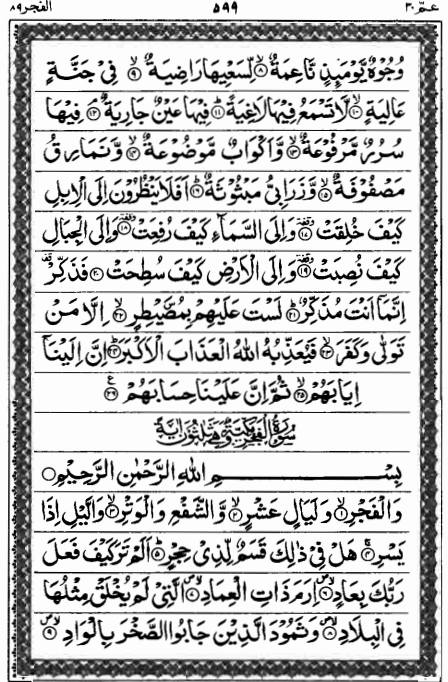 عمّ ۳۰ ۵۹۹ الفجر ۸۹
وُجُوْهٌ يَّوْمَىِٕذٍ نَّاعِمَةٌ ۙ۸ لِّسَعْيِهَا رَاضِيَةٌ ۙ۹ فِيْ جَنَّةٍ
عَالِيَةٍ ۙ۱۰ لَّا تَسْمَعُ فِيْهَا لَاغِيَةً ؕ۱۱ فِيْهَا عَيْنٌ جَارِيَةٌ ۘ۱۲ فِيْهَا
سُرُرٌ مَّرْفُوْعَةٌ ۙ۱۳ وَّاَكْوَابٌ مَّوْضُوْعَةٌ ۙ۱۴ وَّنَمَارِقُ
مَصْفُوْفَةٌ ۙ۱۵ وَّزَرَابِيُّ مَبْثُوْثَةٌ ؕ۱۶ اَفَلَا يَنْظُرُوْنَ اِلَى الْاِبِلِ
كَيْفَ خُلِقَتْ ۥ۱۷ وَاِلَى السَّمَآءِ كَيْفَ رُفِعَتْ ۥ۱۸ وَاِلَى الْجِبَالِ
كَيْفَ نُصِبَتْ ۥ۱۹ وَاِلَى الْاَرْضِ كَيْفَ سُطِحَتْ ۥ۲۰ فَذَكِّرْ ؕ
اِنَّمَاۤ اَنْتَ مُذَكِّرٌ ؕ۲۱ لَسْتَ عَلَيْهِمْ بِمُصَۜيْطِرٍ ۙ۲۲ اِلَّا مَنْ
تَوَلّٰى وَكَفَرَ ۙ۲۳ فَيُعَذِّبُهُ اللّٰهُ الْعَذَابَ الْاَكْبَرَ ؕ۲۴ اِنَّ اِلَيْنَاۤ
اِيَابَهُمْ ۙ۲۵ ثُمَّ اِنَّ عَلَيْنَا حِسَابَهُمْ ۲۶
سُوْرَةُ الْفَجْرِ مَكِّيَّةٌ وَّهِيَ ثَلٰثُوْنَ اٰيَةً
بِسْمِ اللّٰهِ الرَّحْمٰنِ الرَّحِيْمِ
وَالْفَجْرِ ۙ۱ وَلَيَالٍ عَشْرٍ ۙ۲ وَّالشَّفْعِ وَالْوَتْرِ ۙ۳ وَالَّيْلِ اِذَا
يَسْرِ ۚ۴ هَلْ فِيْ ذٰلِكَ قَسَمٌ لِّذِيْ حِجْرٍ ؕ۵ اَلَمْ تَرَ كَيْفَ فَعَلَ
رَبُّكَ بِعَادٍ ۪ۙ۶ اِرَمَ ذَاتِ الْعِمَادِ ۪ۙ۷ الَّتِيْ لَمْ يُخْلَقْ مِثْلُهَا
فِي الْبِلَادِ ۪ۙ۸ وَثَمُوْدَ الَّذِيْنَ جَابُوا الصَّخْرَ بِالْوَادِ ۪ۙ۹